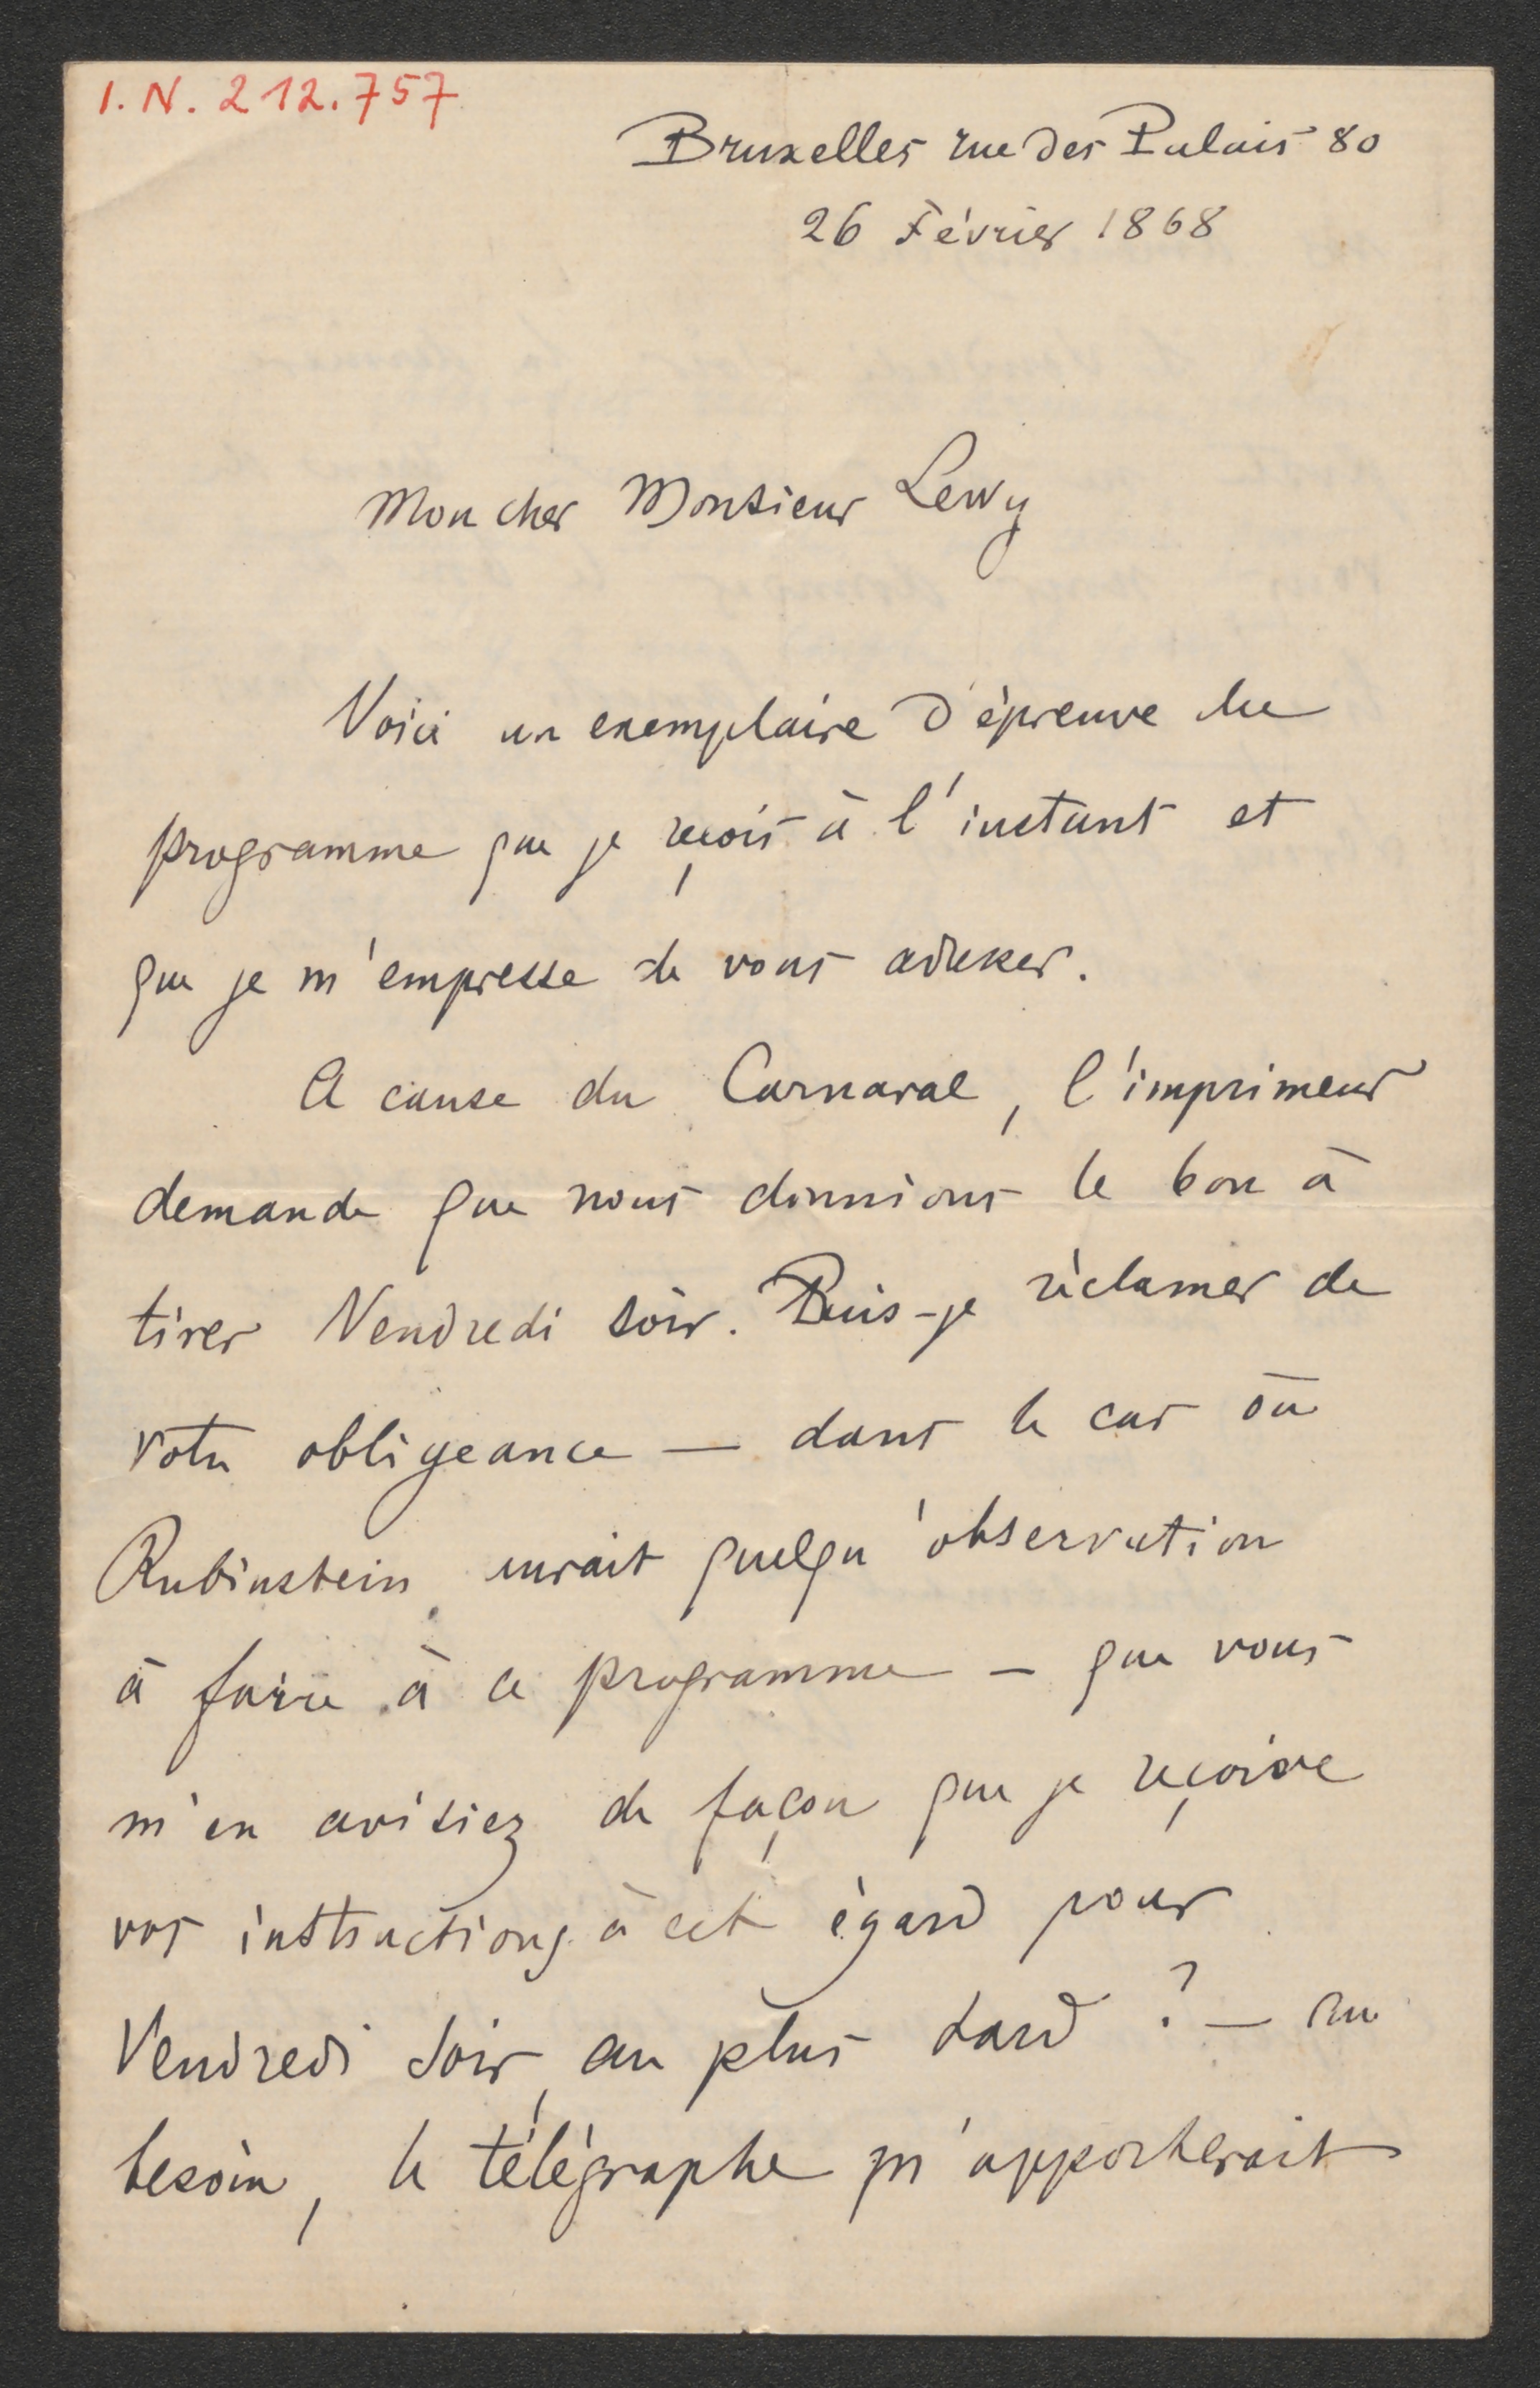 I.N. 212.757
Bruxelles rue des Palais 80
26 Février 1868
Mon cher Monsieur Lewy
Voici un exemplaire d'épreuve du
programme que je reçois à l'instant et
que je m'empresse de vous adresser.
A cause du Carnaval, l'imprimeur
demande que nous donnions le bon à
tirer Vendredi soir. Puis-je réclamer de
votre obligeance — dans le cas où
Rubinstein aurait quelqu'observation
à faire à ce programme — que vous
m'en avisiez de façon que je reçoive
vos instructions à cet égard pour
Vendredi soir, au plus tard ? — Au
besoin, le télégraphe m'apporterait